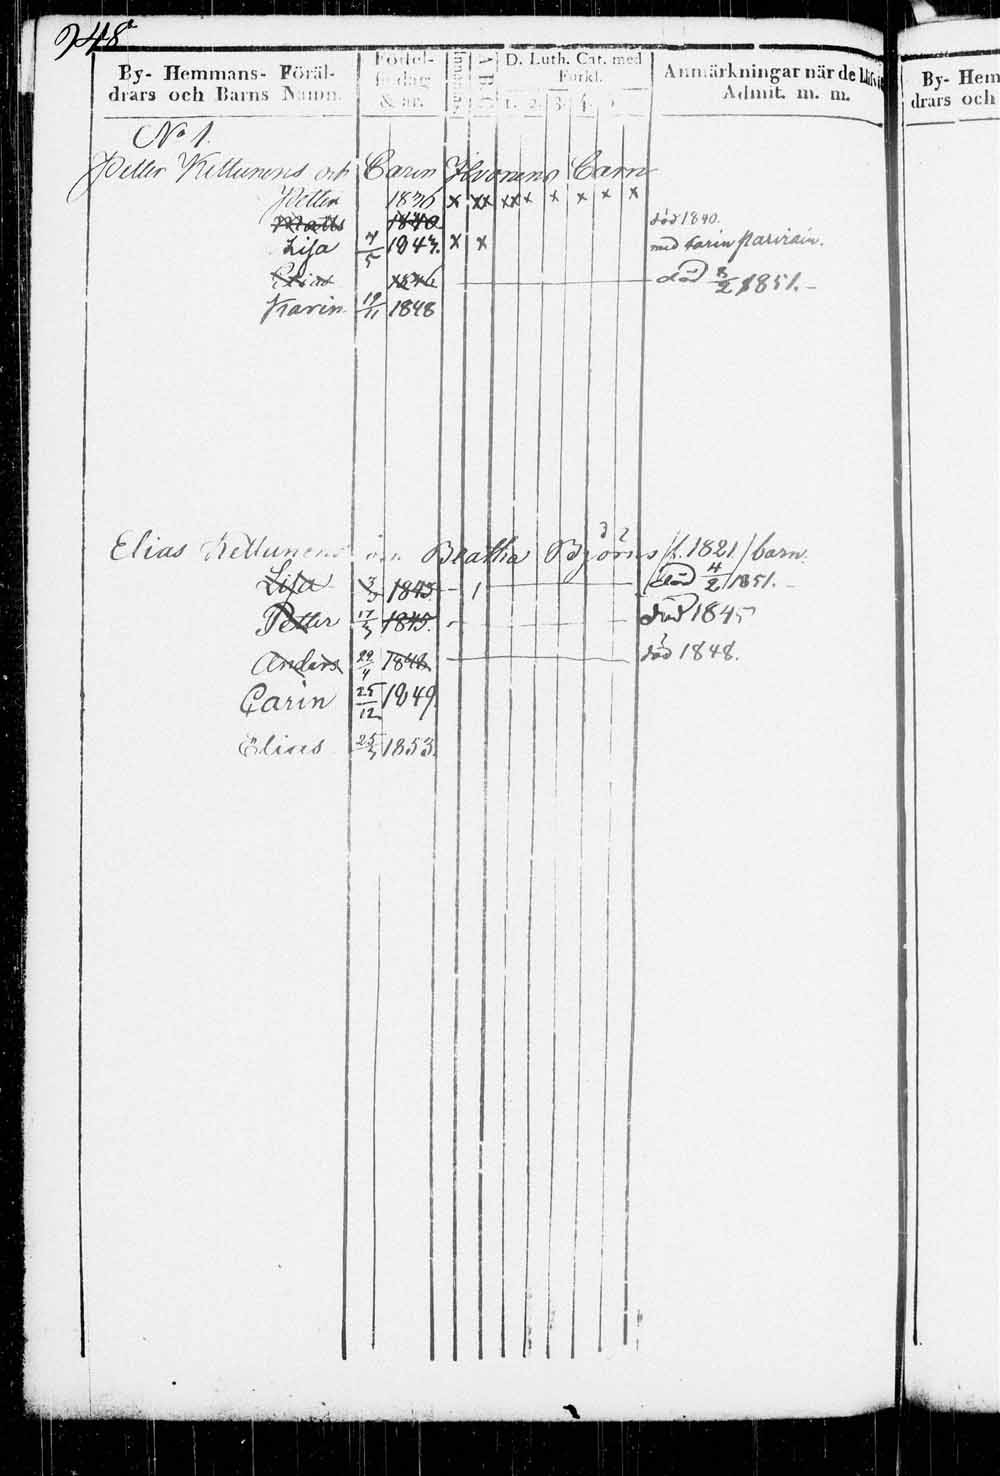 248
By- Hemmans- Föräl-
drars och Barns Namn.
Födel-
sedag
& år.
Innanläs.
A B C
D. Luth. Cat. med
Förkl.
1. 2. 3. 4.
Anmärkningar när de
Admit. m. m.
By- Hem
drars och
No 1.
Petter Kettunens och Carin Ikonens Barn
Petter 1836 x xx xxx x x x x
Matts 1840 död 1840.
Lisa 7/5 1843. x x med Carin
Elias 1846 död 8/2 1851. -
Karin 19/11 1848
Elias Kettunens och Beatha Björns /f. 1821/ barn.
Lisa 1843 död 4/2 1851. -
Petter 17/3 1845. död 1845
Anders 29/4 1848 död 1848.
Carin 25/12 1849
Elias 25/3 1853.